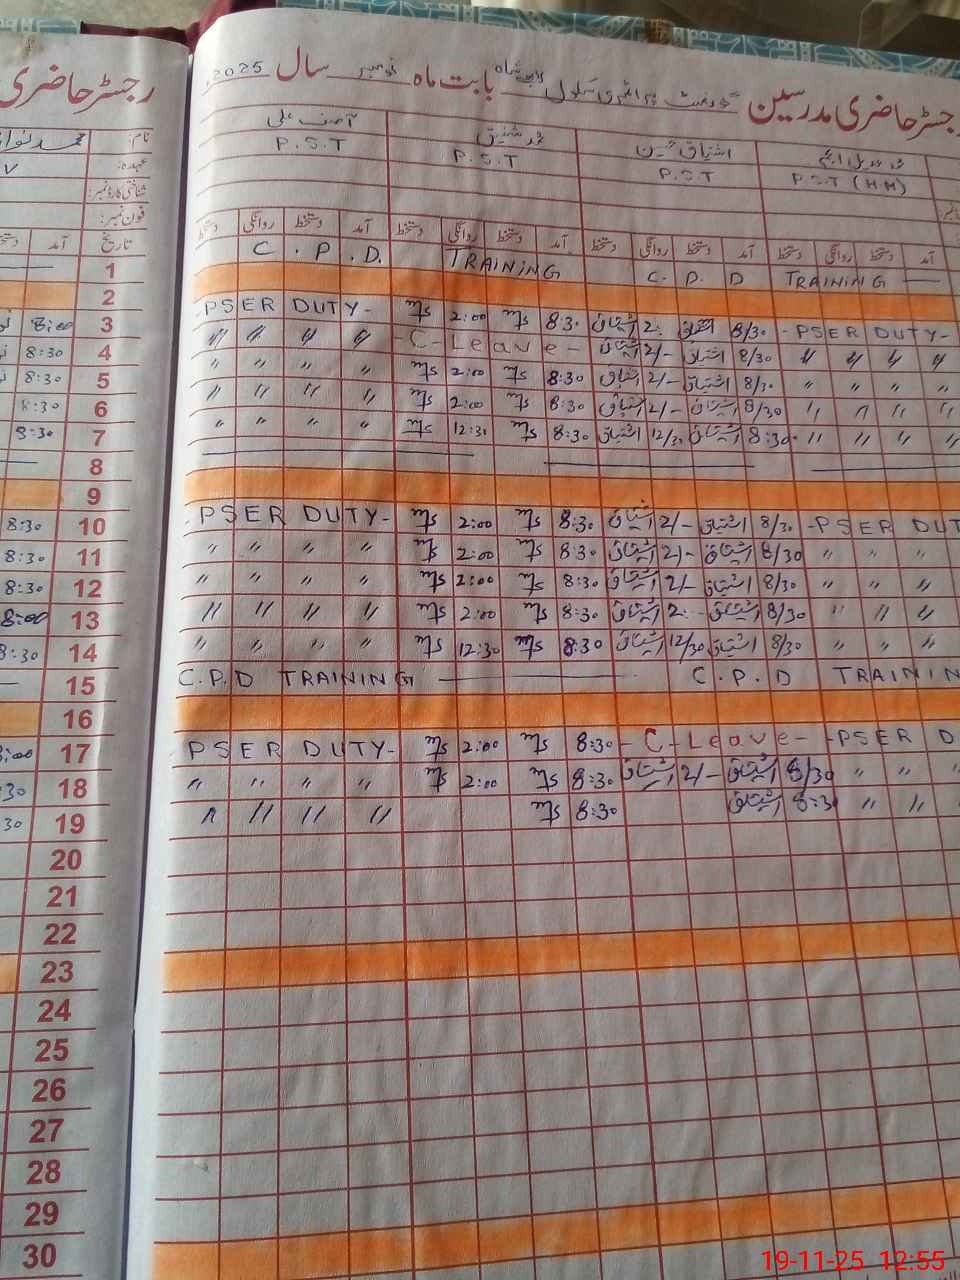 رجسٹر حاضری مدرسین گورنمنٹ پرائمری سکول بابت ماہ نومبر سال 2025
رجسٹر حاضری
نام:
عہدہ:
شناختی کارڈ نمبر:
فون نمبر:
آصف علی
P.S.T
P.S.T
اشتیاق حسین
P.S.T
P.S.T (H.M)
تاریخ آمد دستخط روانگی دستخط آمد دستخط روانگی دستخط آمد دستخط روانگی دستخط آمد دستخط روانگی دستخط
1 C.P.D. TRAINING C.P.D TRAINING —
2
8:00 3 PSER DUTY- 2:00 8:30 اشتیاق 2: اشتیاق 8/30 -PSER DUTY-
8:30 4 〃 〃 〃 〃 -C-Leave- اشتیاق 2/- اشتیاق 8/30 〃 〃 〃 〃
8:30 5 〃 〃 〃 〃 2:00 8:30 اشتیاق 2/- اشتیاق 8/30 〃 〃 〃 〃
8:30 6 〃 〃 〃 〃 2:00 8:30 اشتیاق 2/- اشتیاق 8/30 〃 〃 〃 〃
8:30 7 〃 〃 〃 〃 12:30 8:30 اشتیاق 12/30 اشتیاق 8:30 〃 〃 〃 〃
8
9
8:30 10 -PSER DUTY- 2:00 8:30 اشتیاق 2/- اشتیاق 8/30 -PSER DUT
8:30 11 〃 〃 〃 〃 2:00 8:30 اشتیاق 2/- اشتیاق 8/30 〃 〃 〃
8:30 12 〃 〃 〃 〃 2:00 8:30 اشتیاق 2/- اشتیاق 8/30 〃 〃 〃
8:00 13 〃 〃 〃 〃 2:00 8:30 اشتیاق 2:- اشتیاق 8/30 〃 〃 〃
8:30 14 〃 〃 〃 〃 12:30 8:30 اشتیاق 12/30 اشتیاق 8/30 〃 〃 〃
15 C.P.D TRAINING — C.P.D TRAININ
16
8:00 17 PSER DUTY- 2:00 8:30 -C-Leave- -PSER D
30 18 〃 〃 〃 〃 2:00 8:30 اشتیاق 2/- اشتیاق 8/30 〃 〃 〃
30 19 〃 〃 〃 〃 8:30 اشتیاق 8:30 〃 〃
20
21
22
23
24
25
26
27
28
29
30
19-11-25 12:55